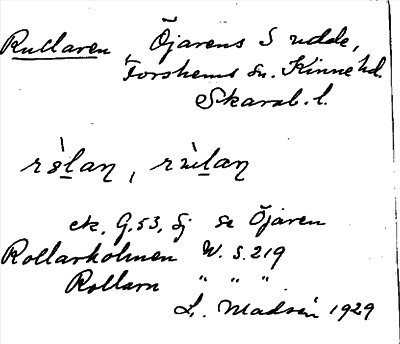 Rullaren, Öjarens S udde,
Forshems sn. Kinne hd.
Skarab. l.
rs̀lan, rùlan
ek. G. 53, Sj se Öjaren
Rollarholmen W. S. 219
Rollarn " " "
L. Madsén 1929